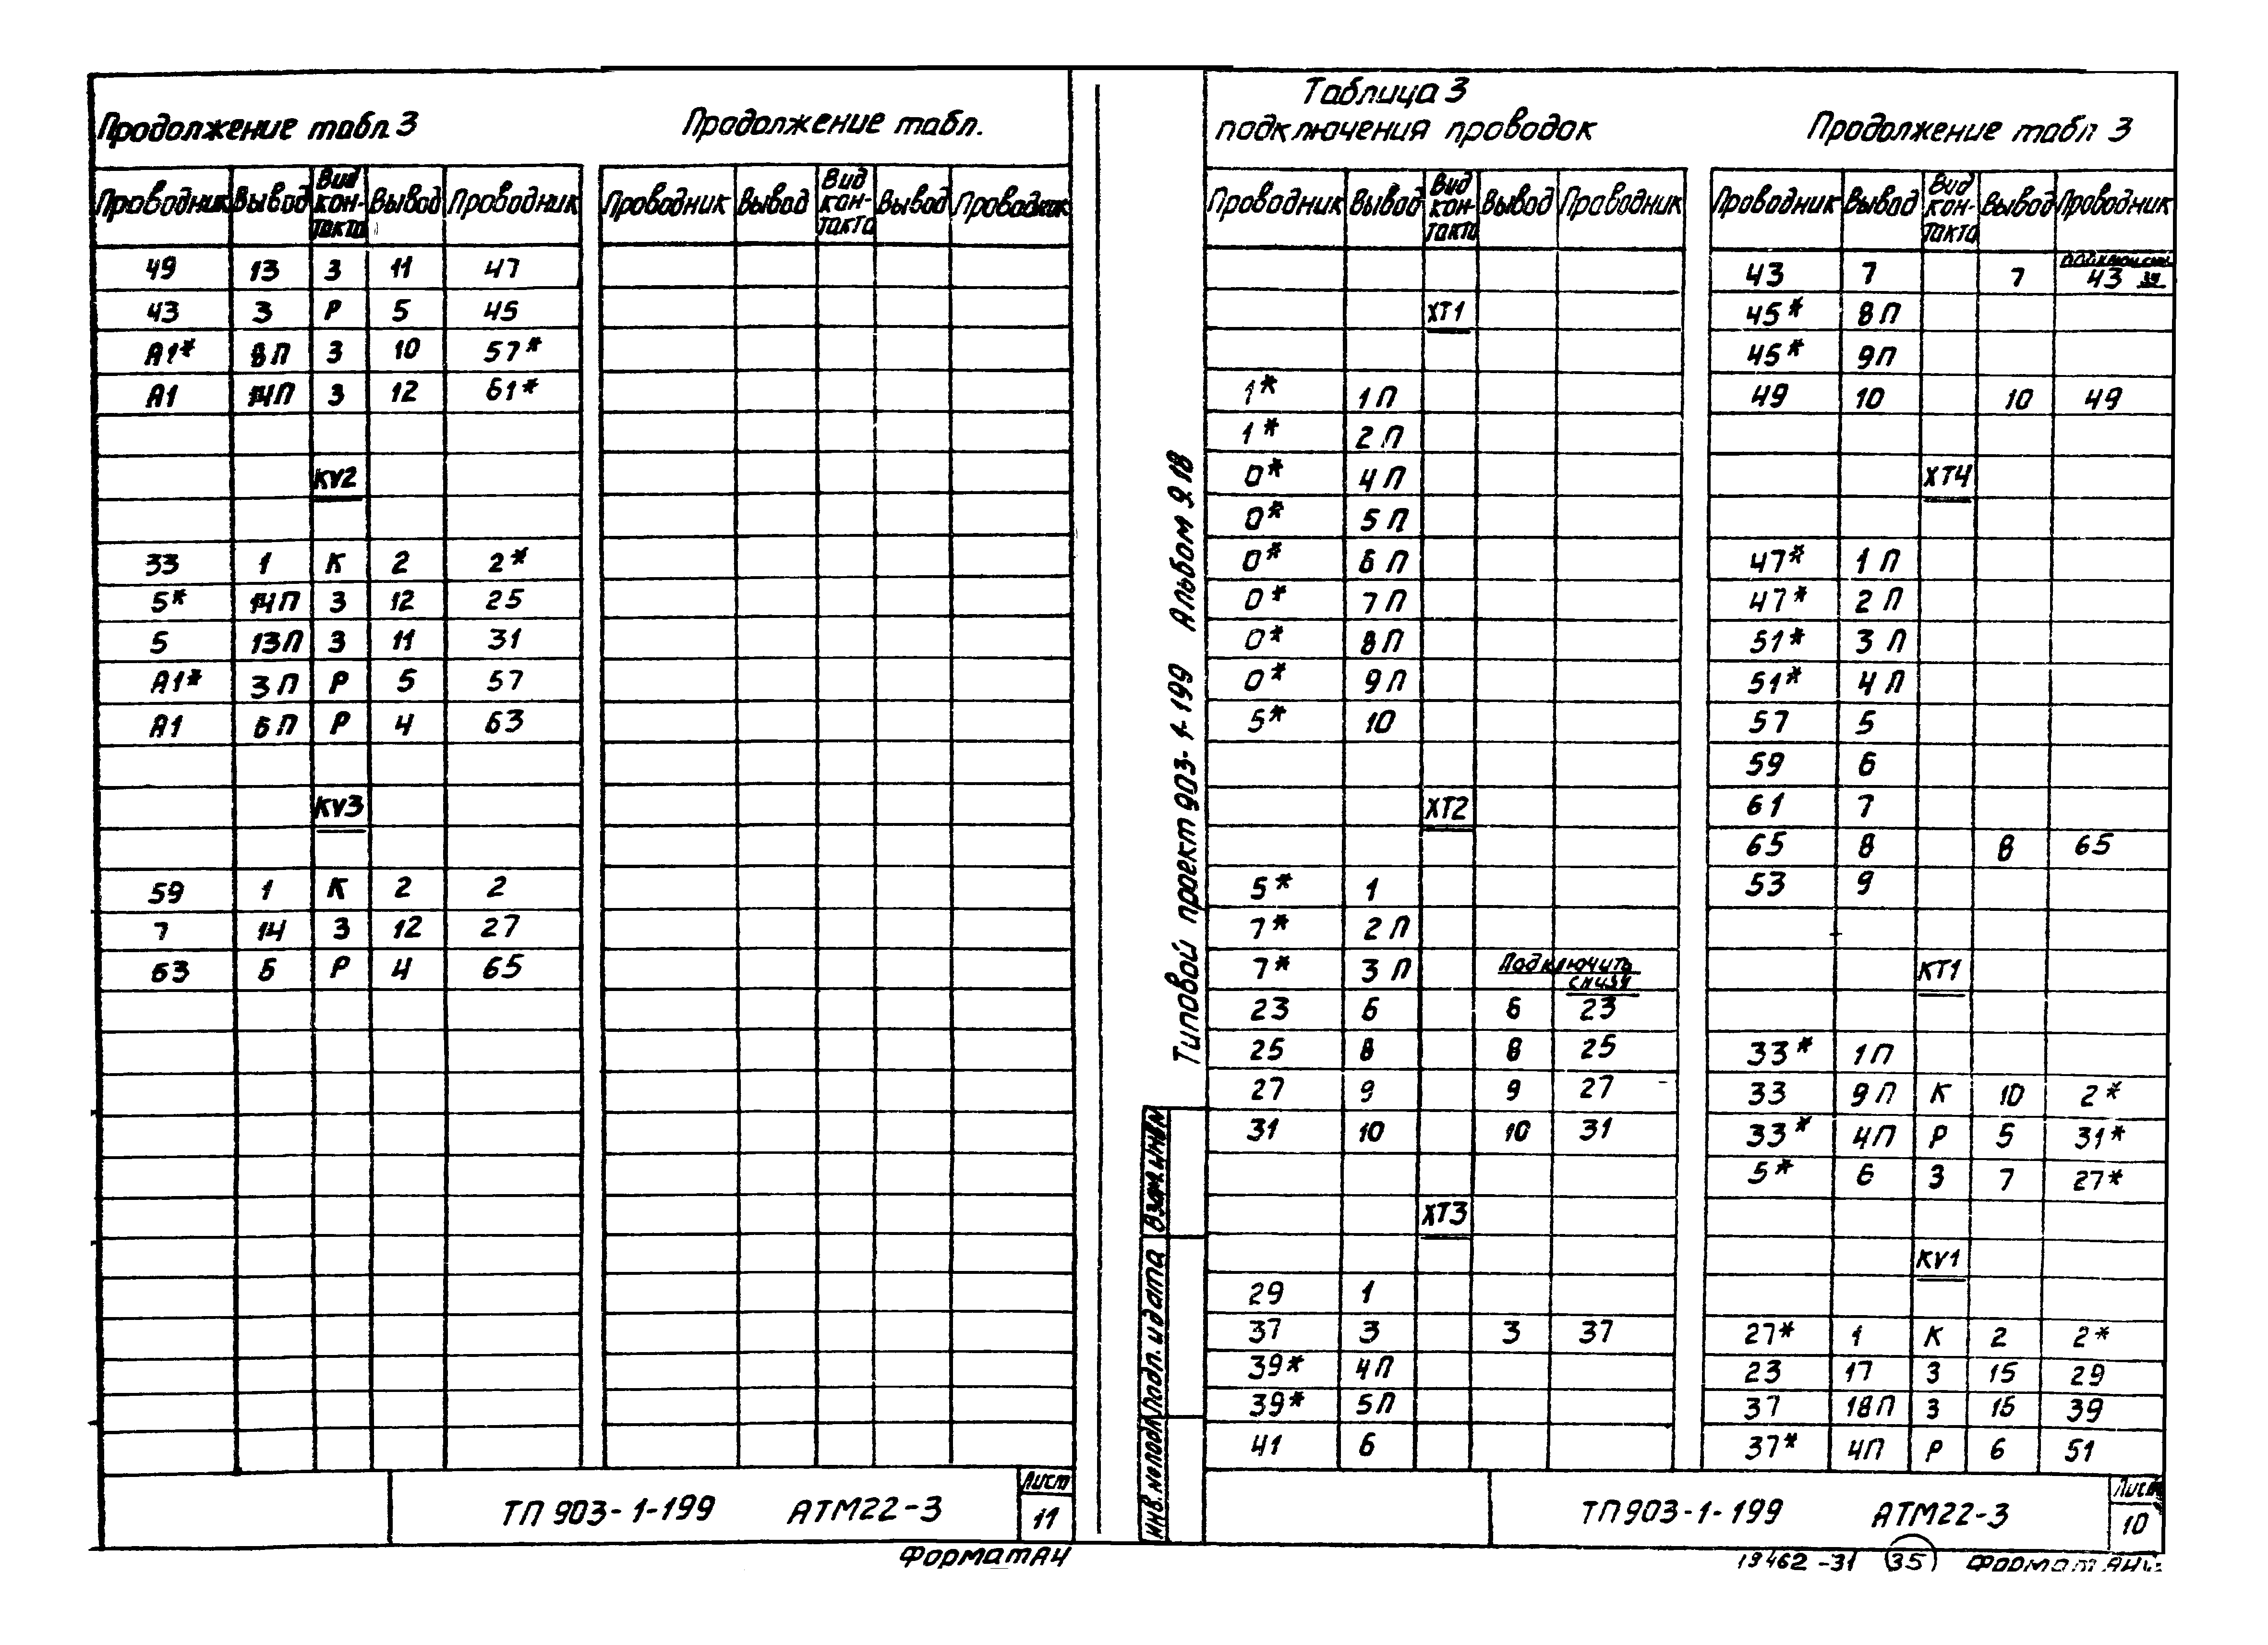 Продолжение табл 3
Проводник Вывод Вид контакта Вывод Проводник
49 13 З 11 47
43 3 Р 5 45
А1* 8П З 10 57*
А1 14П З 12 61*
KV2
33 1 К 2 2*
5* 14П З 12 25
5 13П З 11 31
А1* 3П Р 5 57
А1 6П Р 4 63
KV3
59 1 К 2 2
7 14 З 12 27
63 6 Р 4 65
Продолжение табл.
Проводник Вывод Вид контакта Вывод Проводник
ТП 903-1-199 АТМ22-3
Лист
11
Формат А4
Типовой проект 903-1-199 Альбом 9.18
Взам. инв. №
Подп. и дата
Инв. № подл.
Таблица 3
подключения проводок
Проводник Вывод Вид контакта Вывод Проводник
XT1
1* 1П
1* 2П
0* 4П
0* 5П
0* 6П
0* 7П
0* 8П
0* 9П
5* 10
XT2
5* 1
7* 2П
7* 3П Подключить
23 6 6 23
25 8 8 25
27 9 9 27
31 10 10 31
XT3
29 1
37 3 3 37
39* 4П
39* 5П
41 6
Продолжение табл 3
Проводник Вывод Вид контакта Вывод Проводник
43 7 7 43
45* 8П
45* 9П
49 10 10 49
XT4
47* 1П
47* 2П
51* 3П
51* 4П
57 5
59 6
61 7
65 8 8 65
53 9
KT1
33* 1П
33 9П К 10 2*
33* 4П Р 5 31*
5* 6 З 7 27*
KV1
27* 1 К 2 2*
23 17 З 15 29
37 18П З 16 39
37* 4П Р 6 51
ТП903-1-199 АТМ22-3
Лист
10
19462-31 35 Формат